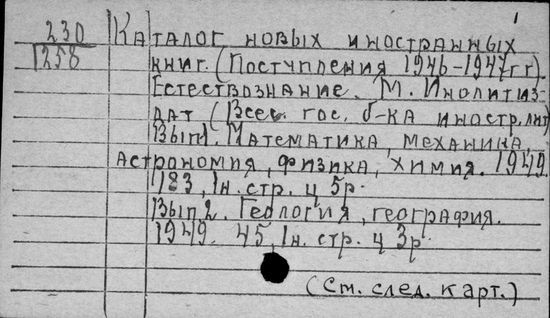 1
230 Каталог новых иностранных
258 книг. (Поступления 1946-1947гг).
Естествознание. М. Инолитиз-
дат (Всес. гос. б-ка иностр.лит)
Вып1. Математика, механика,
астрономия, физика, химия. 1949.
183, 1н. стр. ц 5р.
Вып.2. Геология, география.
1949. 45, 1н. стр. ц 3р.
(См. след. карт.)